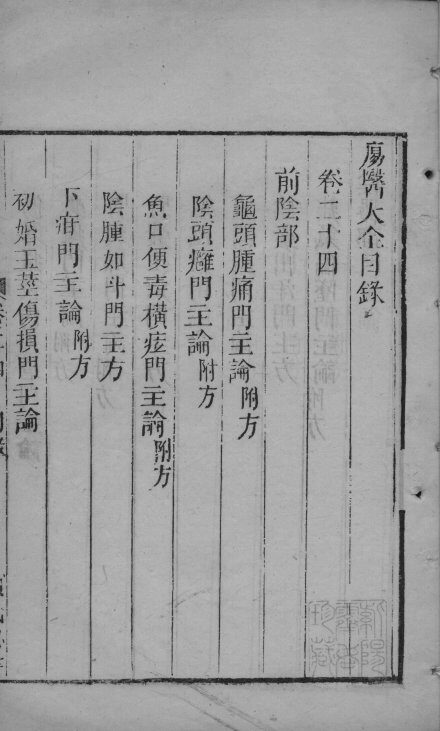 瘍醫大全目錄
卷二十四
前陰部
龜頭腫痛門主論附方
陰頭癰門主論附方
魚口便毒橫痃門主論附方
陰腫如斗門主方
下疳門主論附方
初婚玉莖傷損門主論